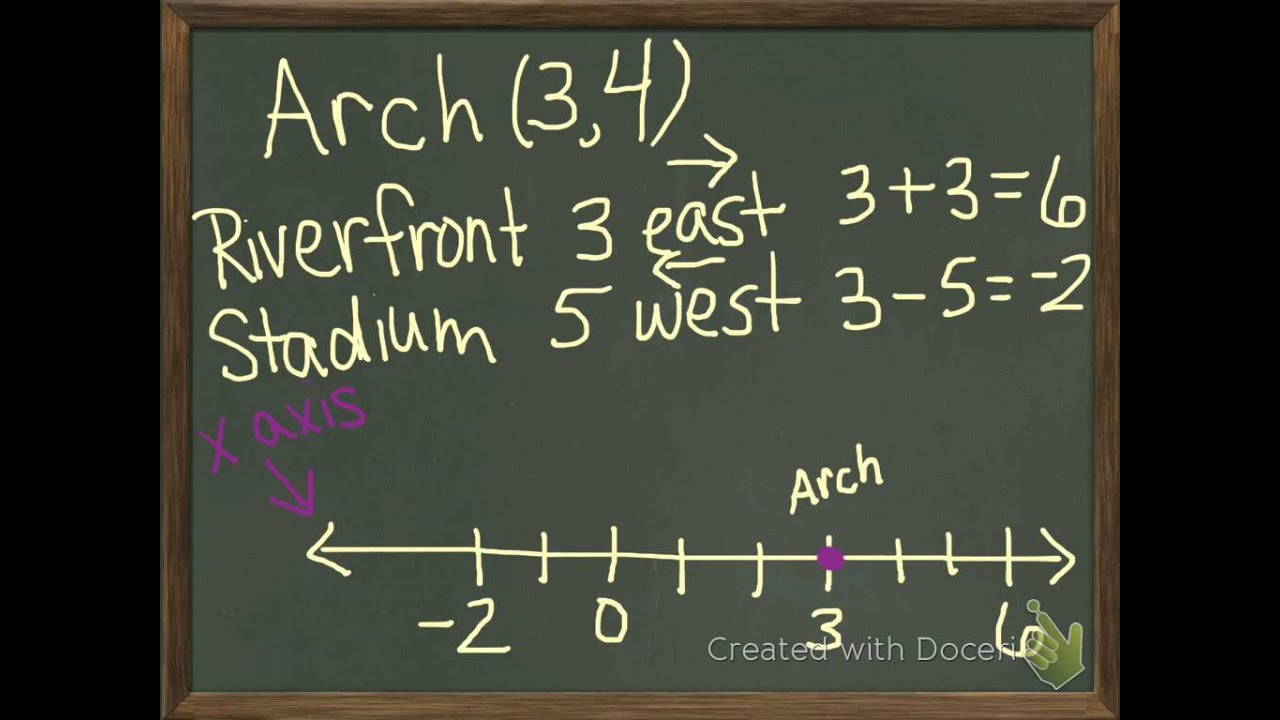 Arch (3,4)
Riverfront 3 east 3+3=6
Stadium 5 west 3-5=-2
x axis
Arch
-2 0 3 6
Created with Doceri